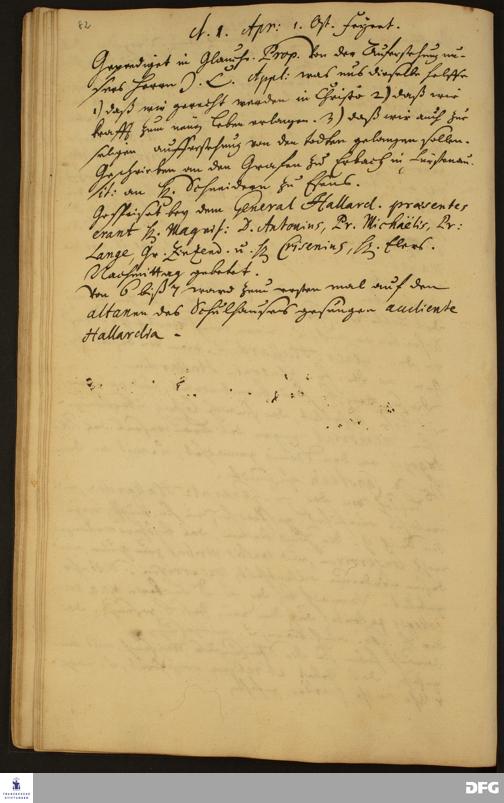 82
d. 1. Apr: 1. Ost. Feyert.
Geprediget in Glauch. Prop. von der Auferstehung un-
sers Herrn J. C. Appl: was uns dieselbe helffe
1) daß wir gerecht werden in Christo 2) daß wir
krafft zum neuen leben erlangen. 3) daß wir auch zur
seligen aufferstehung von den todten gelangen sollen.
Geschrieben an den Grafen zu Erbach in Fürstenau.
it: an H. Schneidern zu Esens.
Gespeiset bey dem General Hallard. praesentes
erant H. Magnif: D. Antonius, Pr. Michaëlis, Pr:
Lange, Gr. Zinzend. u. H Crisenius, H. Elers.
Nachmittag gebetet.
Von 6 biß 7 ward zum ersten mal auf dem
altanen des Schulhauses gesungen audiente
Hallardia -
FRANCKESCHE STIFTUNGEN
DFG